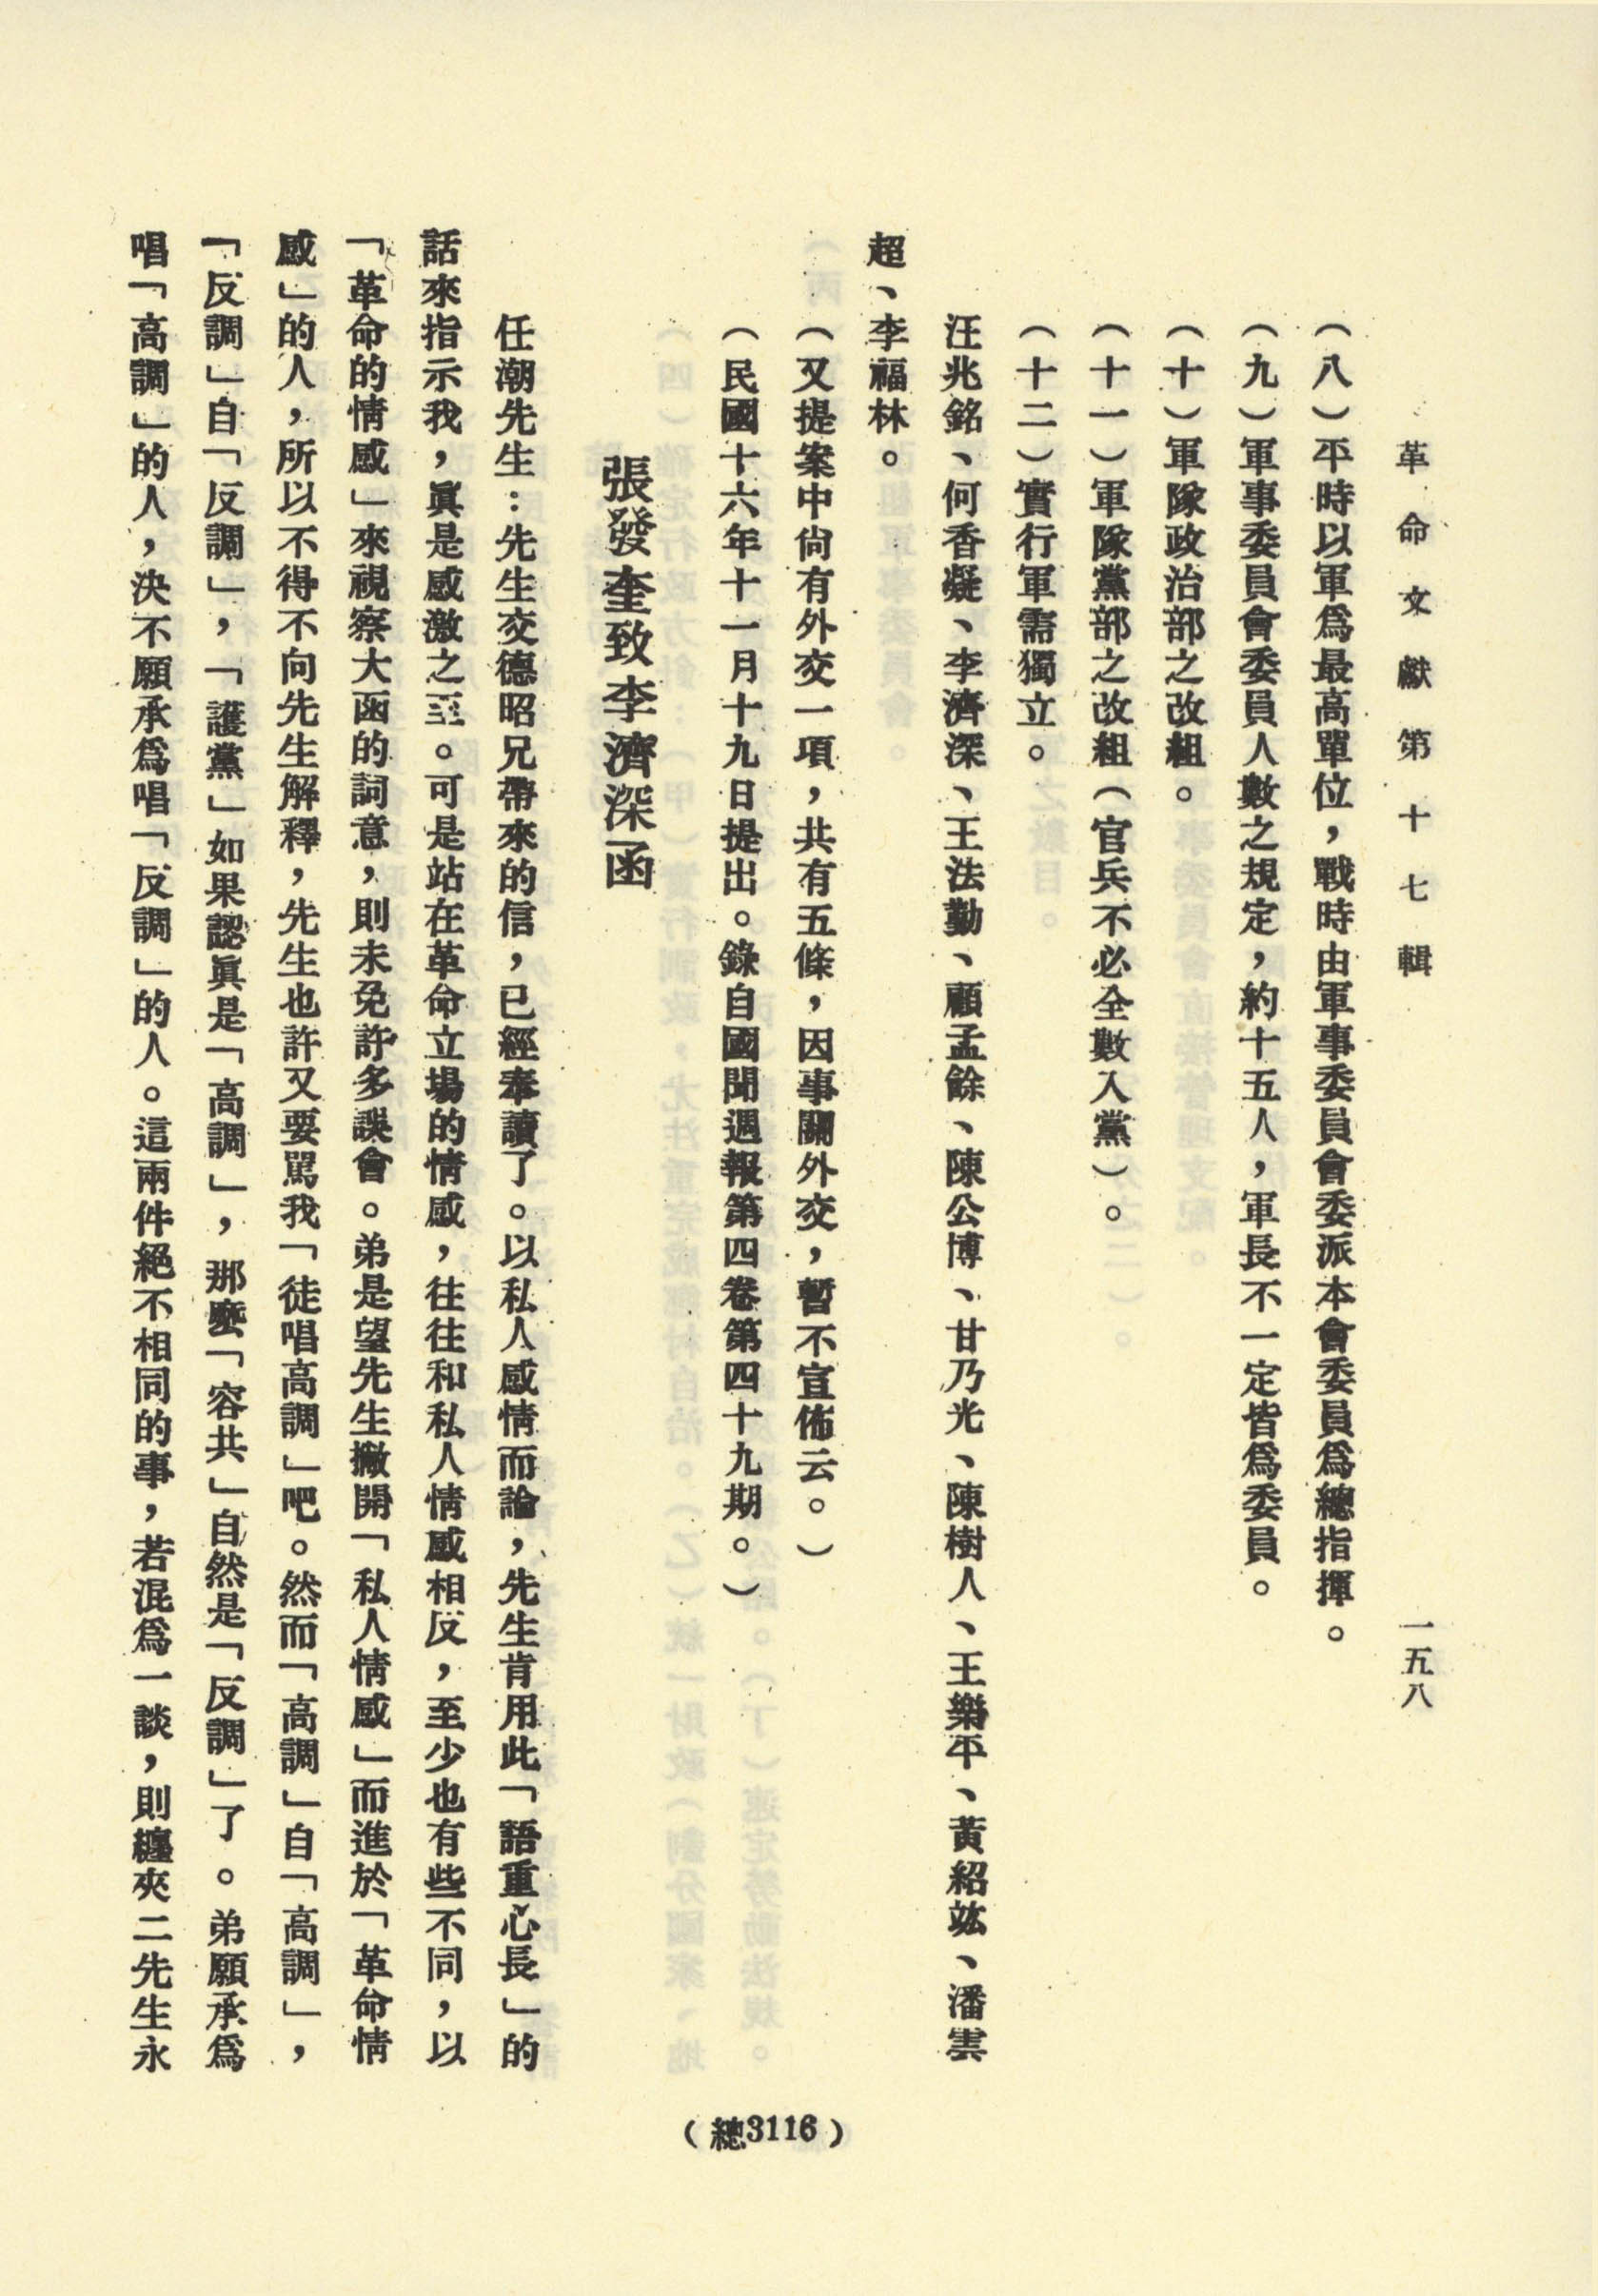 革命文獻第十七輯
一五八
（八）平時以軍爲最高單位，戰時由軍事委員會委派本會委員爲總指揮。
（九）軍事委員會委員人數之規定，約十五人，軍長不一定皆爲委員。
（十）軍隊政治部之改組。
（十一）軍隊黨部之改組（官兵不必全數入黨）。
（十二）實行軍需獨立。
汪兆銘、何香凝、李濟深、王法勤、顧孟餘、陳公博、甘乃光、陳樹人、王樂平、黃紹竑、潘雲
超、李福林。
（又提案中尙有外交一項，共有五條，因事關外交，暫不宣佈云。）
（民國十六年十一月十九日提出。錄自國聞週報第四卷第四十九期。）
張發奎致李濟深函
任潮先生：先生交德昭兄帶來的信，已經奉讀了。以私人感情而論，先生肯用此「語重心長」的
話來指示我，眞是感激之至。可是站在革命立場的情感，往往和私人情感相反，至少也有些不同，以
「革命的情感」來視察大函的詞意，則未免許多誤會。弟是望先生撇開「私人情感」而進於「革命情
感」的人，所以不得不向先生解釋，先生也許又要罵我「徒唱高調」吧。然而「高調」自「高調」，
「反調」自「反調」，「護黨」如果認眞是「高調」，那麼「容共」自然是「反調」了。弟願承爲
唱「高調」的人，決不願承爲唱「反調」的人。這兩件絕不相同的事，若混爲一談，則纏夾二先生永
（總3116）